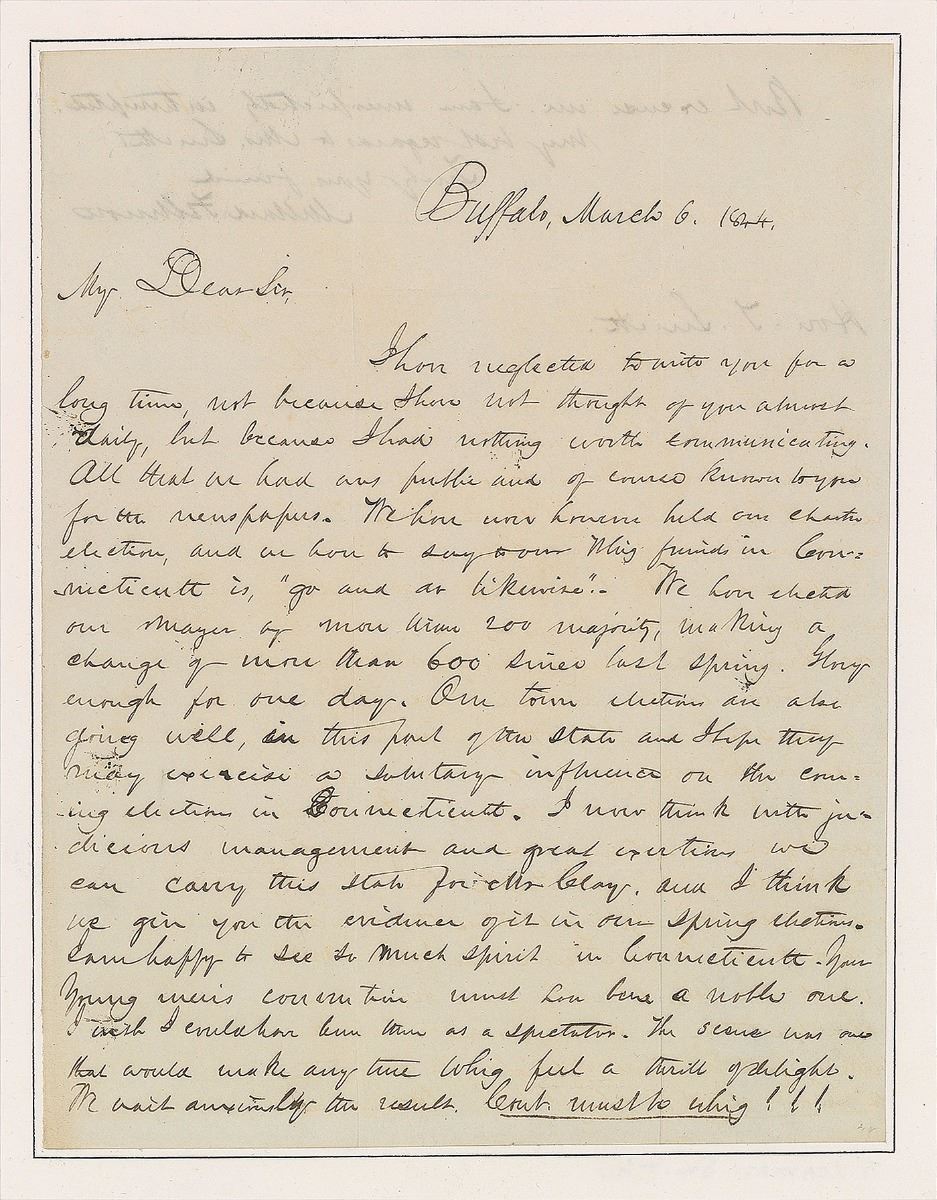 Buffalo, March 6. 1844.
My Dear Sir,
I have neglected to write you for a
long time, not because I have not thought of you almost
daily, but because I had nothing worth communicating.
All that we had was public and of course known to you
for the newspapers. We have now however held our charter
election, and we have to say to our Whig friends in Con=
necticutt is, "go and do likewise".- We have elected
our Mayor by more than 200 majority, making a
change of more than 600 since last spring. Glory
enough for one day. Our town elections are also
going well, in this part of the State and I hope they
may exercise a salutary influence on the com=
ing elections in Connecticutt. I now think with ju=
dicious management and great exertions we
can carry this State for Mr Clay, and I think
we give you the evidence of it in our spring elections.
I am happy to see so much spirit in Connecticutt. Your
Young men's convention must have been a noble one.
I wish I could have been there as a spectator. The scene was one
that would make any true Whig feel a thrill of delight.
We wait anxiously the result. Cont. must be whig!!!